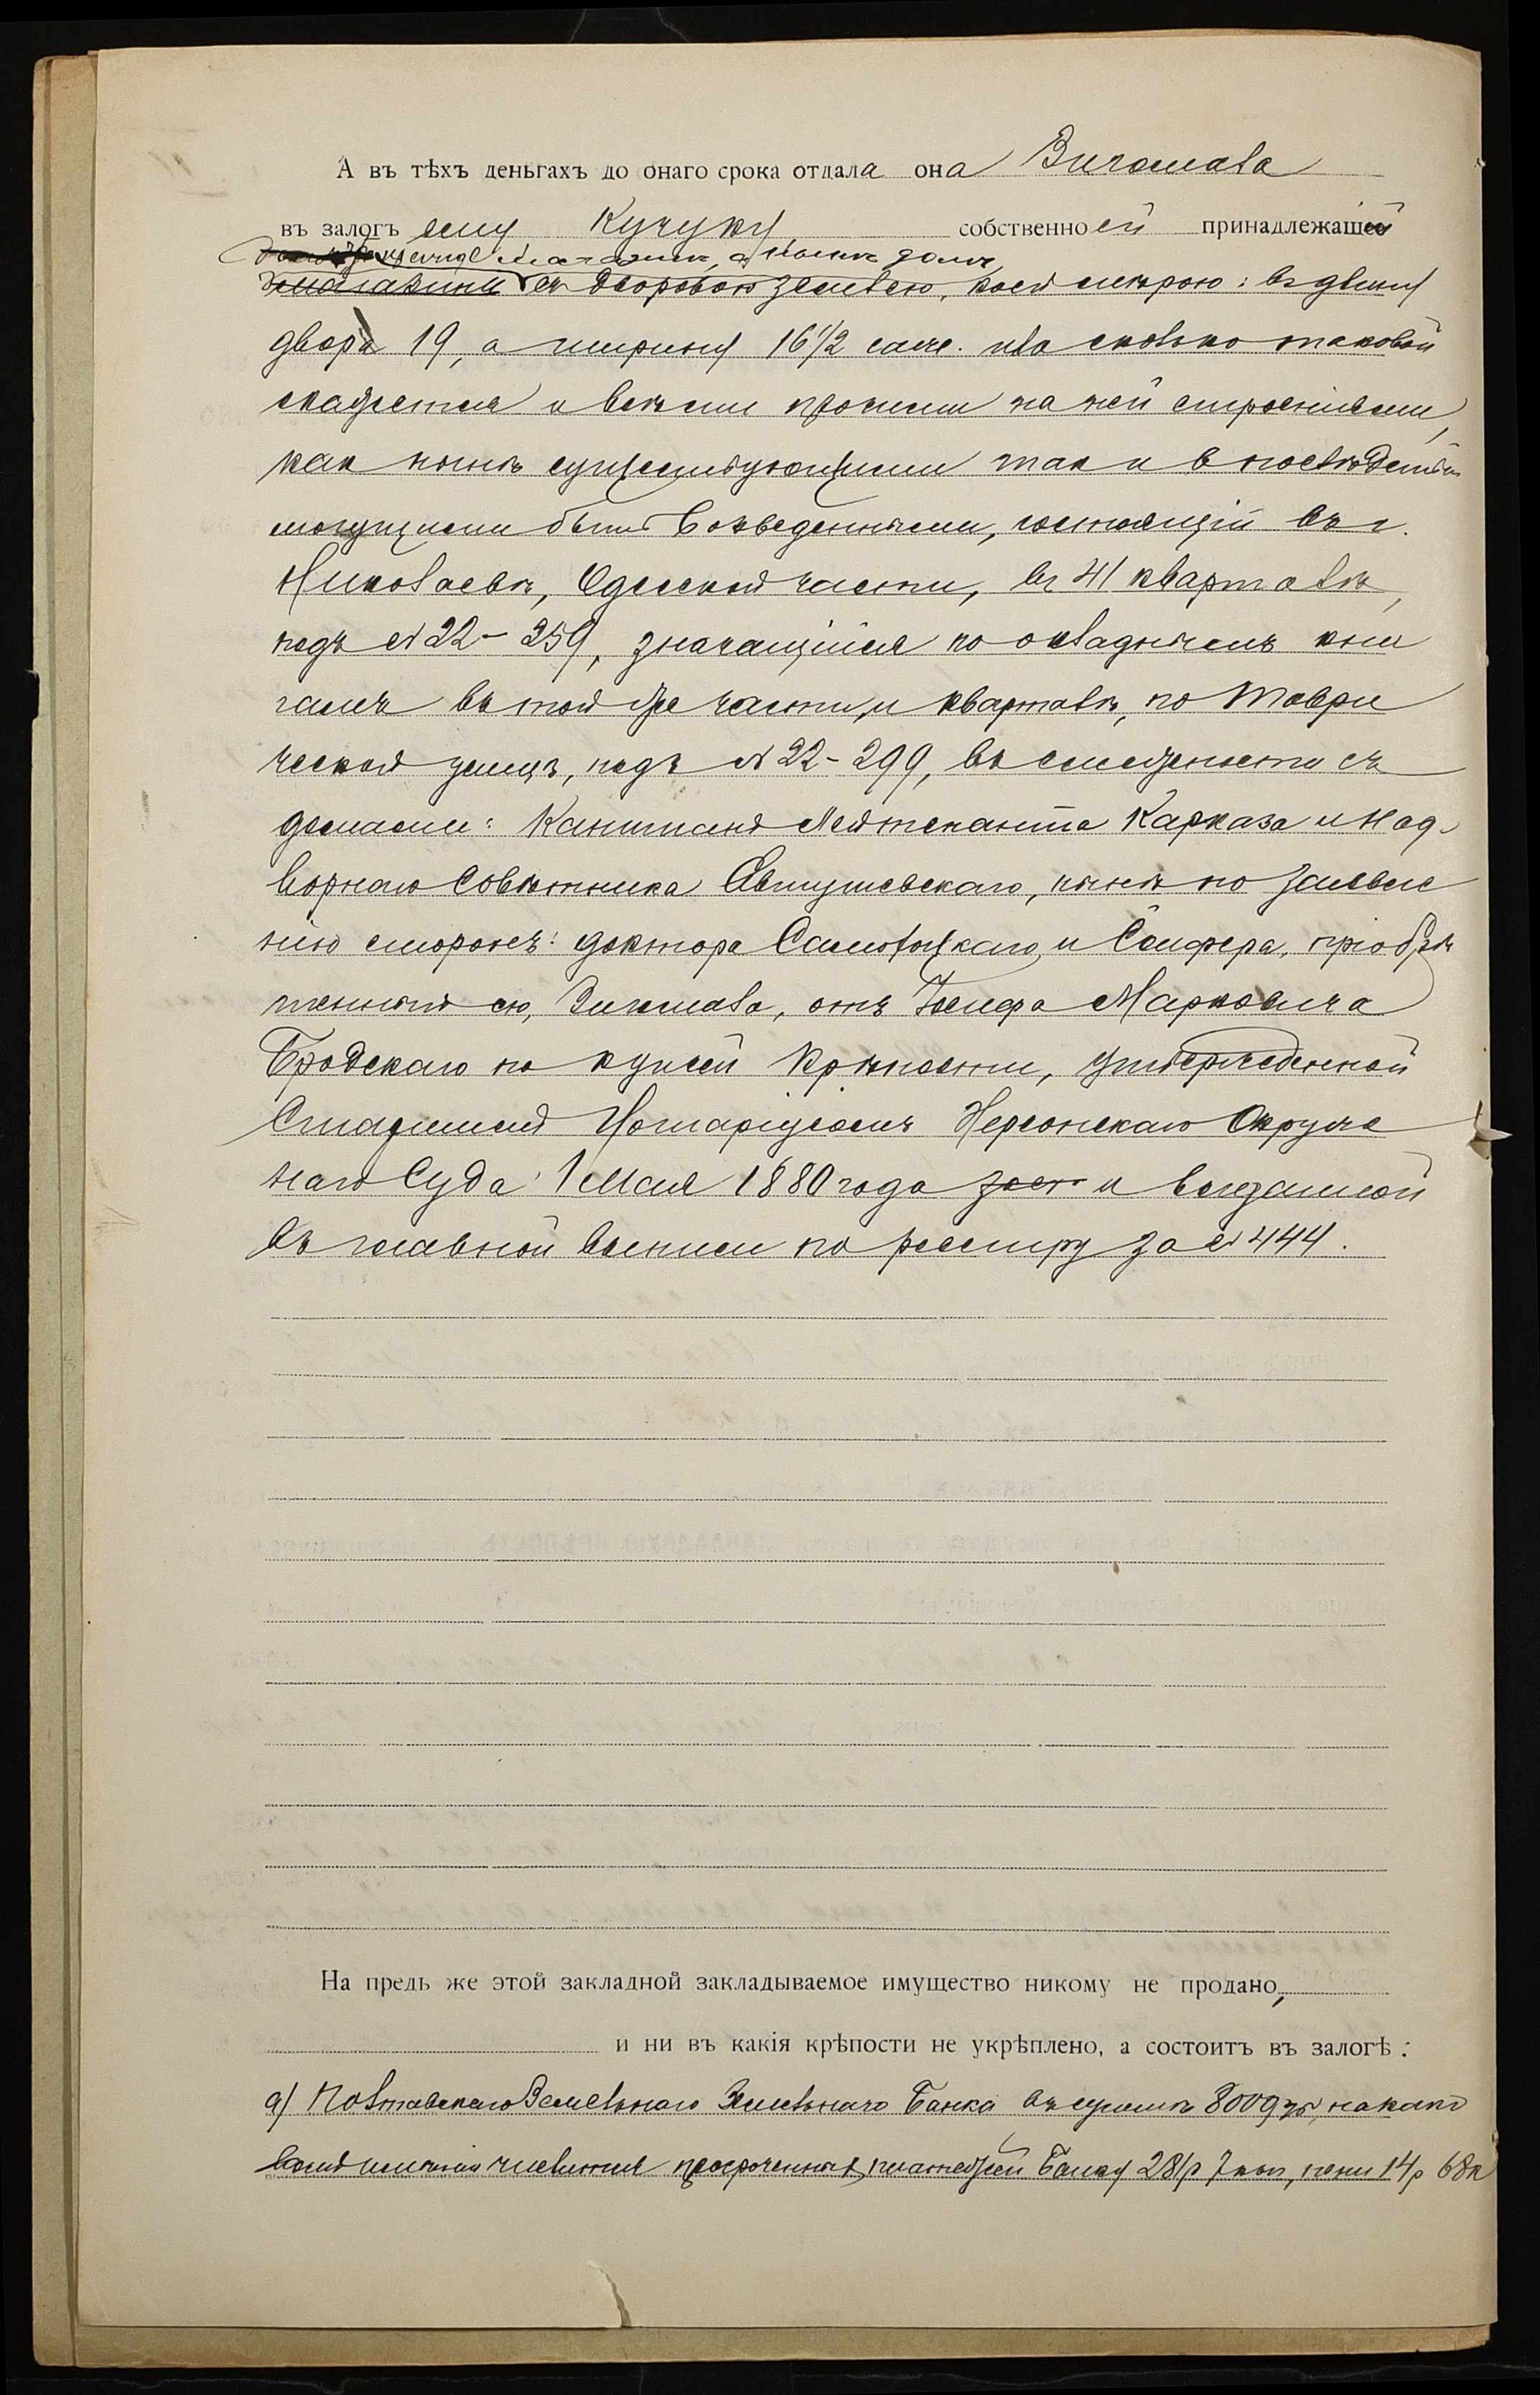 А въ тѣхъ деньгахъ до онаго срока отдала она Вигомала
въ залогъ ему Кучуку собственно ей принадлежащій
магазинъ, а нынѣ домъ,
съ дворовою землею, коей мѣрою: въ длину
двора 19, а ширину 16 1/2 саж. или сколько таковой
окажется и всѣми прочими на ней строеніями,
какъ нынѣ существующими такъ и впослѣдствіи
могущими быть возведенными, состоящій въ г.
Николаевѣ, Одесской части, въ 41 кварталѣ,
подъ № 22-259, значащійся по окладнымъ кни
гамъ въ той же части, и кварталѣ, по Таври
ческой улицѣ, подъ № 22-299, въ смежности съ
домами: Капитанъ Лейтенанта Карказа и Над-
ворнаго Совѣтника Автушевскаго, нынѣ по заявле
нію сторонъ: доктора Самотоцкаго и Сойфера, пріобрѣ
тенный ею, Вигомала, отъ Іосифа Марковича
Бродскаго по купчей крѣпости, утвержденной
Старшимъ Нотаріусомъ Херсонскаго Окруж
наго Суда 1 Мая 1880 года и выданной
въ главной выписи по реестру за № 444.
На предь же этой закладной закладываемое имущество никому не продано,
и ни въ какія крѣпости не укрѣплено, а состоитъ въ залогѣ:
а) Полтавскаго Земельнаго Банка въ суммѣ 8009 р., на како
вомъ имѣніи числится просроченныхъ платежей Банку 281 р 7 коп, пени 14 р 68 к